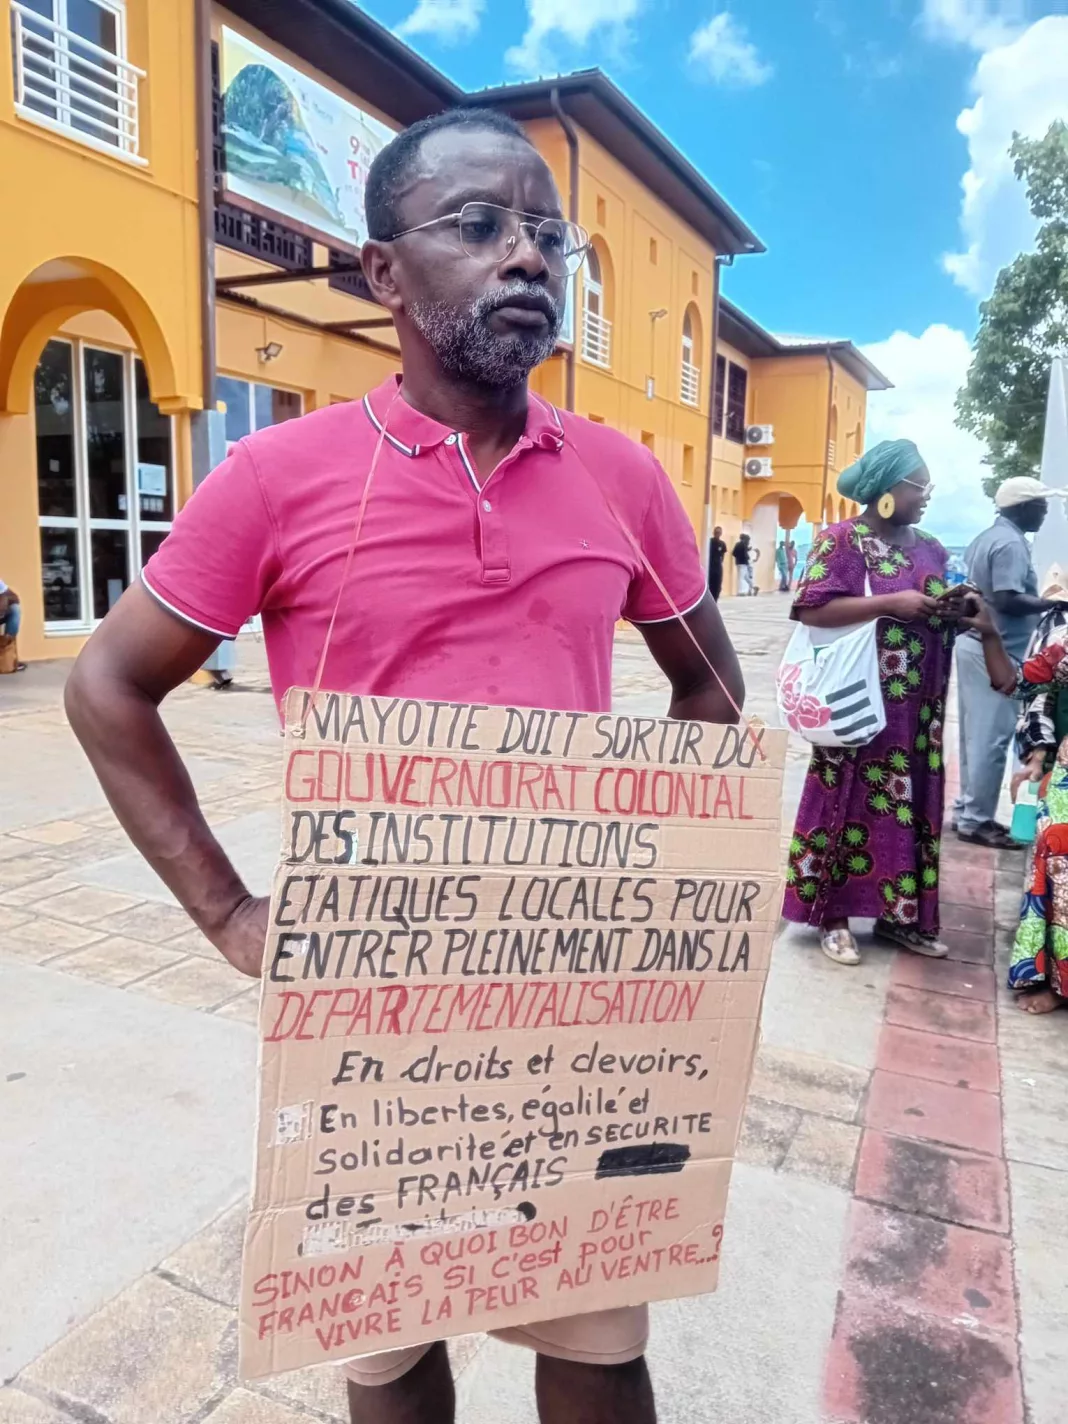 9
MAYOTTE DOIT SORTIR DU
GOUVERNORAT COLONIAL
DES INSTITUTIONS
ETATIQUES LOCALES POUR
ENTRER PLEINEMENT DANS LA
DEPARTEMENTALISATION
En droits et devoirs,
En libertes, égalité et
solidarité et en SECURITE
des FRANÇAIS
SINON À QUOI BON D'ÊTRE
FRANÇAIS SI c'est pour
VIVRE LA PEUR AU VENTRE...?